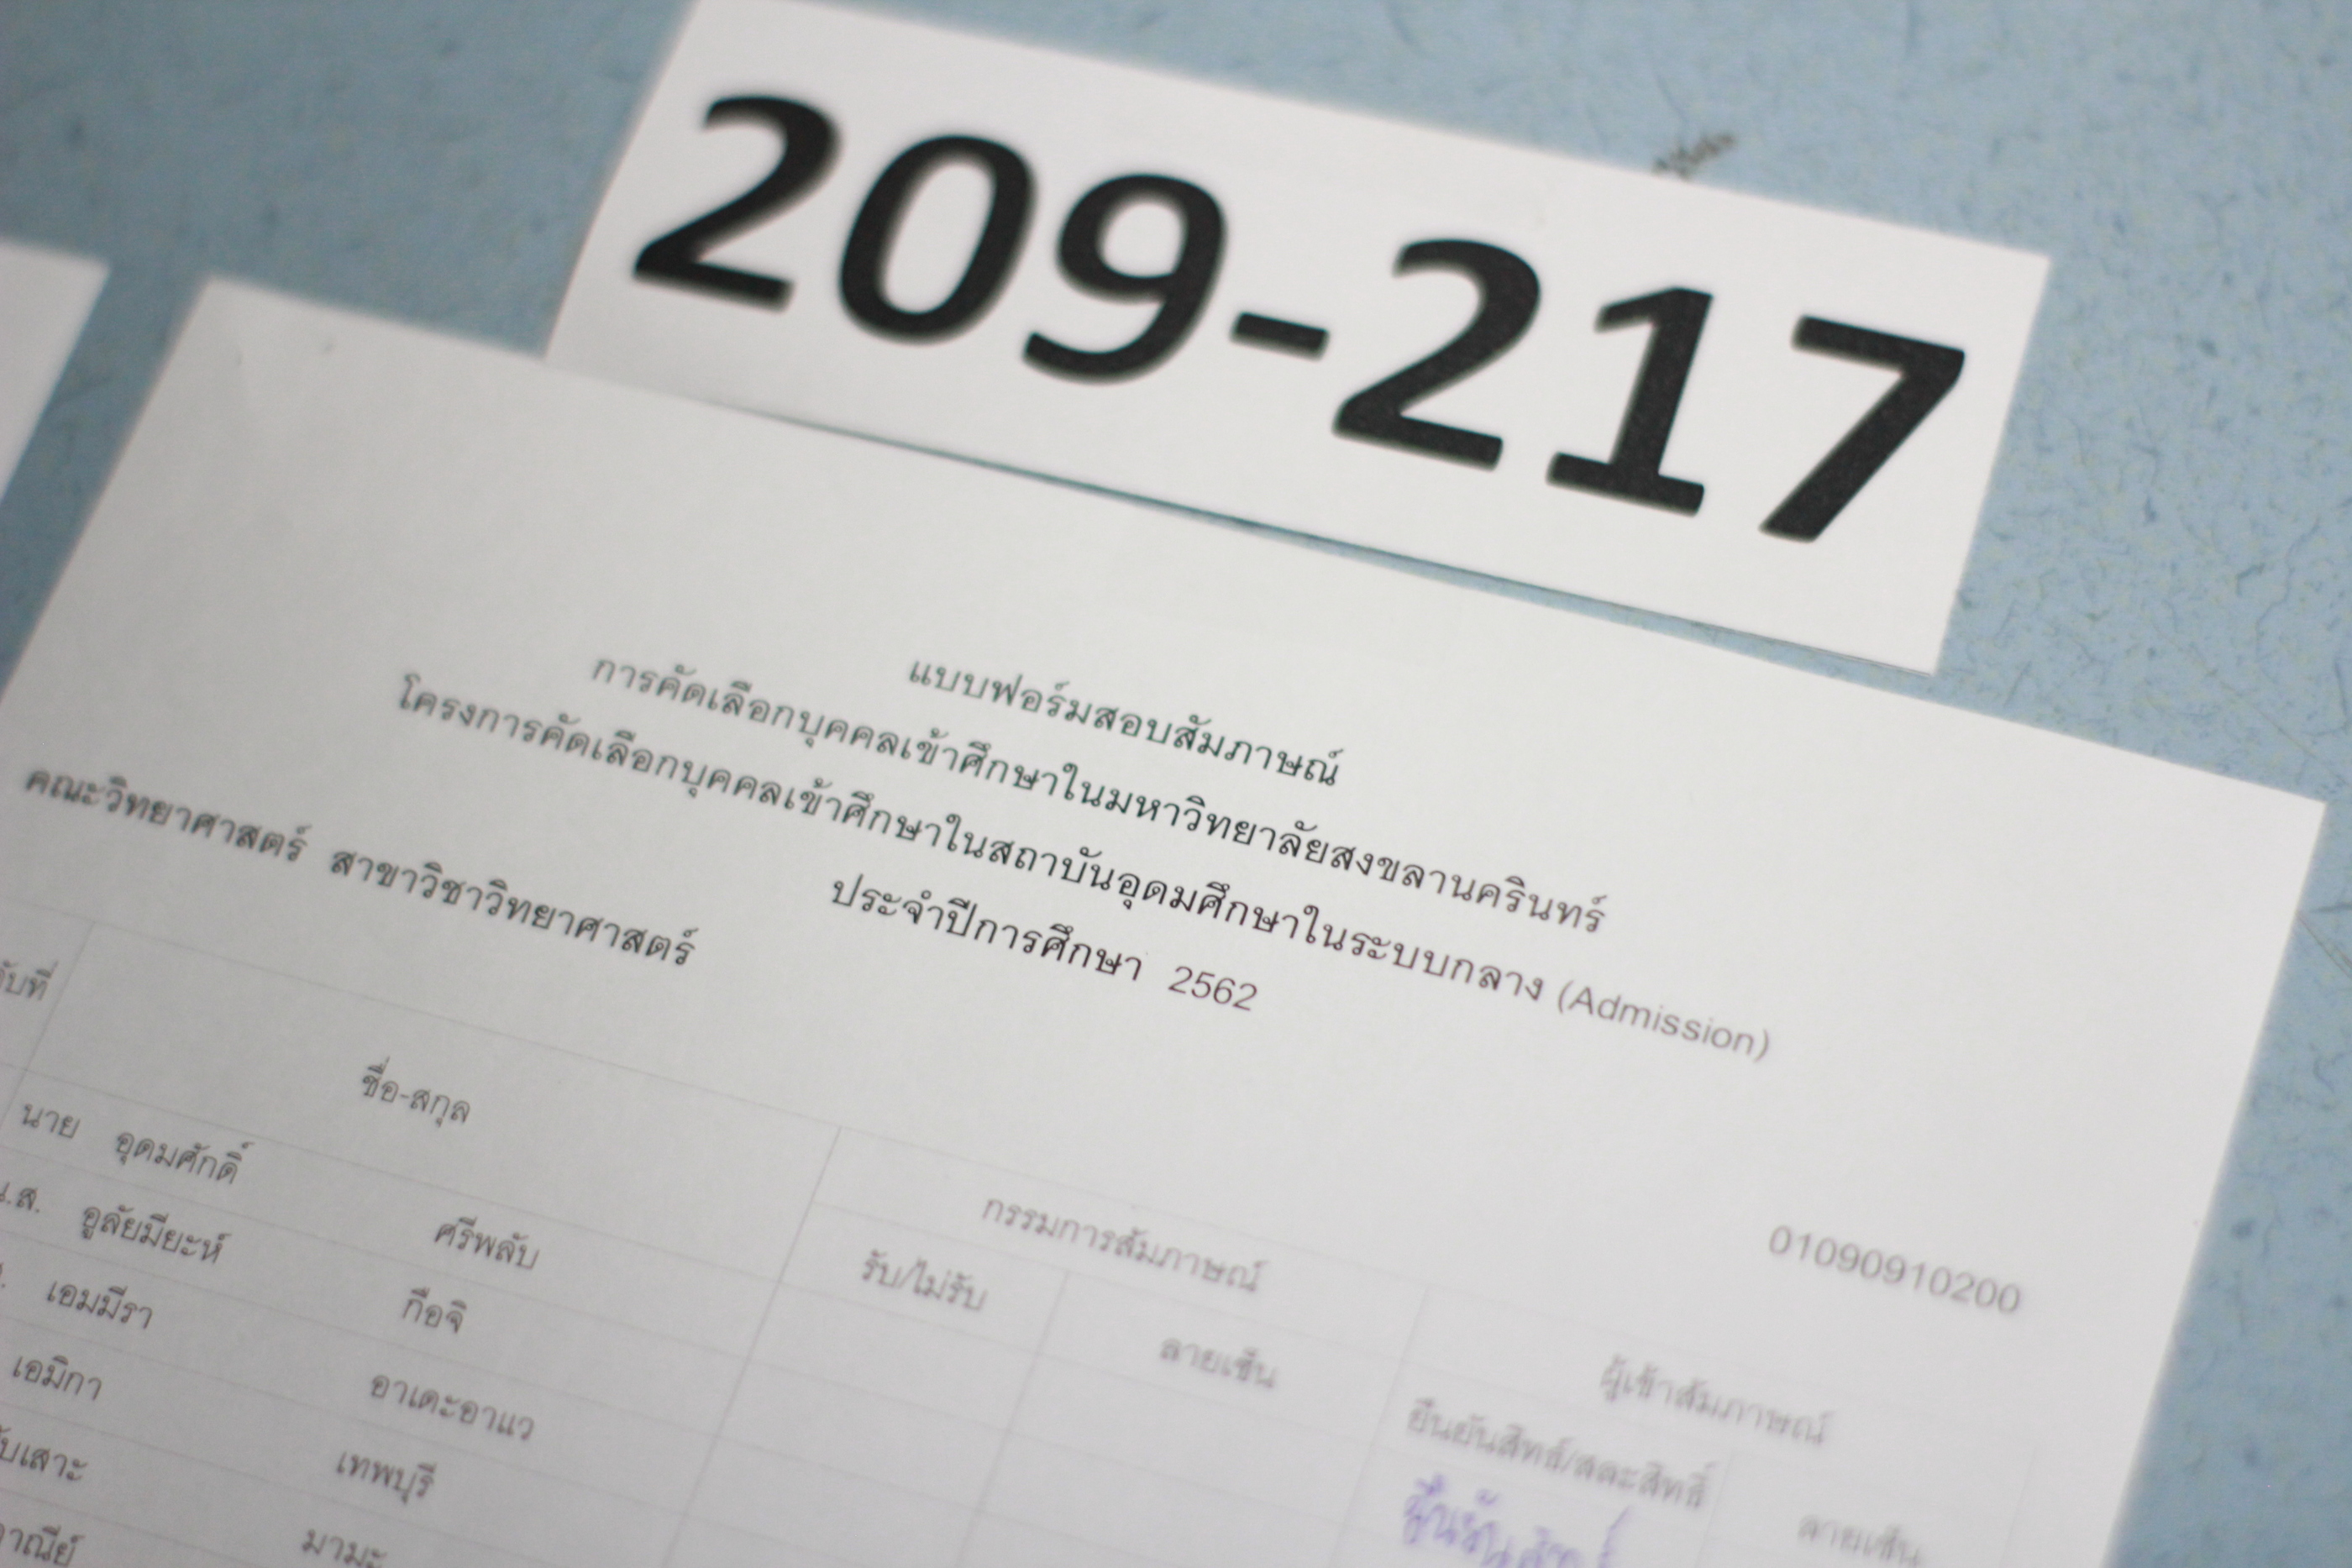 209-217
แบบฟอร์มสอบสัมภาษณ์
การคัดเลือกบุคคลเข้าศึกษาในมหาวิทยาลัยสงขลานครินทร์
โครงการคัดเลือกบุคคลเข้าศึกษาในสถาบันอุดมศึกษาในระบบกลาง (Admission)
ประจำปีการศึกษา 2562
คณะวิทยาศาสตร์ สาขาวิชาวิทยาศาสตร์
01090910200
ชื่อ-สกุล
กรรมการสัมภาษณ์
ผู้เข้าสัมภาษณ์
รับ/ไม่รับ
ลายเซ็น
ยืนยันสิทธ์/สละสิทธิ์
ลายเซ็น
นาย อุดมศักดิ์ ศรีพลับ
น.ส. อูลัยมียะห์ กือจิ
เอมมีรา อาเดะอาแว
เอมิกา เทพบุรี
มามะ